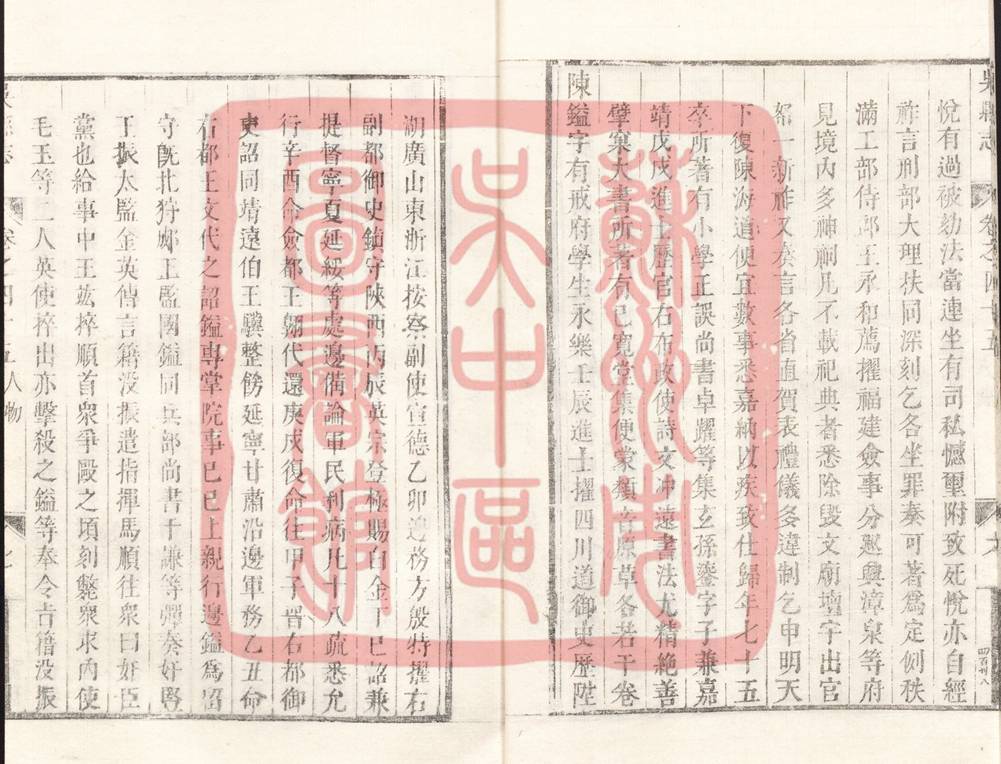 吳縣志 卷之四十五
悅有過被劾法當連坐有司私憾璽附致死悅亦自經
祚言刑部大理扶同深刻乞各坐罪奏可著為定例秩
滿工部侍郎王永和薦擢福建僉事分廵興漳泉等府
見境內多神祠凡不載祀典者悉除毀文廟壇宇出官
帑一新祚又奏言各省直賀表禮儀多違制乞申明天
下復陳海道便宜數事悉嘉納以疾致仕歸年七十五
卒所著有小學正誤尚書卓躍等集玄孫鏊字子兼嘉
靖戊戌進士歷官右布政使詩文沖遠書法尤精絕善
擘窠大書所著有已寬堂集便蒙類音原草各若干卷
陳鎰字有戒府學生永樂壬辰進士擢四川道御史歷陞
湖廣山東浙江按察副使宣德乙卯邊務方殷特擢右
副都御史鎮守陝西丙辰英宗登極賜白金丁巳詔兼
提督寧夏延綏等處邊備論軍民利病凡十八疏悉允
行辛酉命僉都王翺代還庚戌復命往甲子晋右都御
史詔同靖遠伯王驥整飭延寧甘肅沿邊軍務乙丑命
右都王文代之詔鎰專掌院事己巳上親行邊鎰為留
守旣北狩郕王監國鎰同兵部尚書于謙等彈奏奸閹
王振太監金英傳言籍没振遣指揮馬順往衆曰奸臣
黨也給事中王竑捽順首衆爭毆之頃刻斃衆求內使
毛玉等二人英使捽出亦擊殺之鎰等奉令旨籍没振
卷之四十五人物
七
四百卅八
蘇州市
吳中區
圖書館